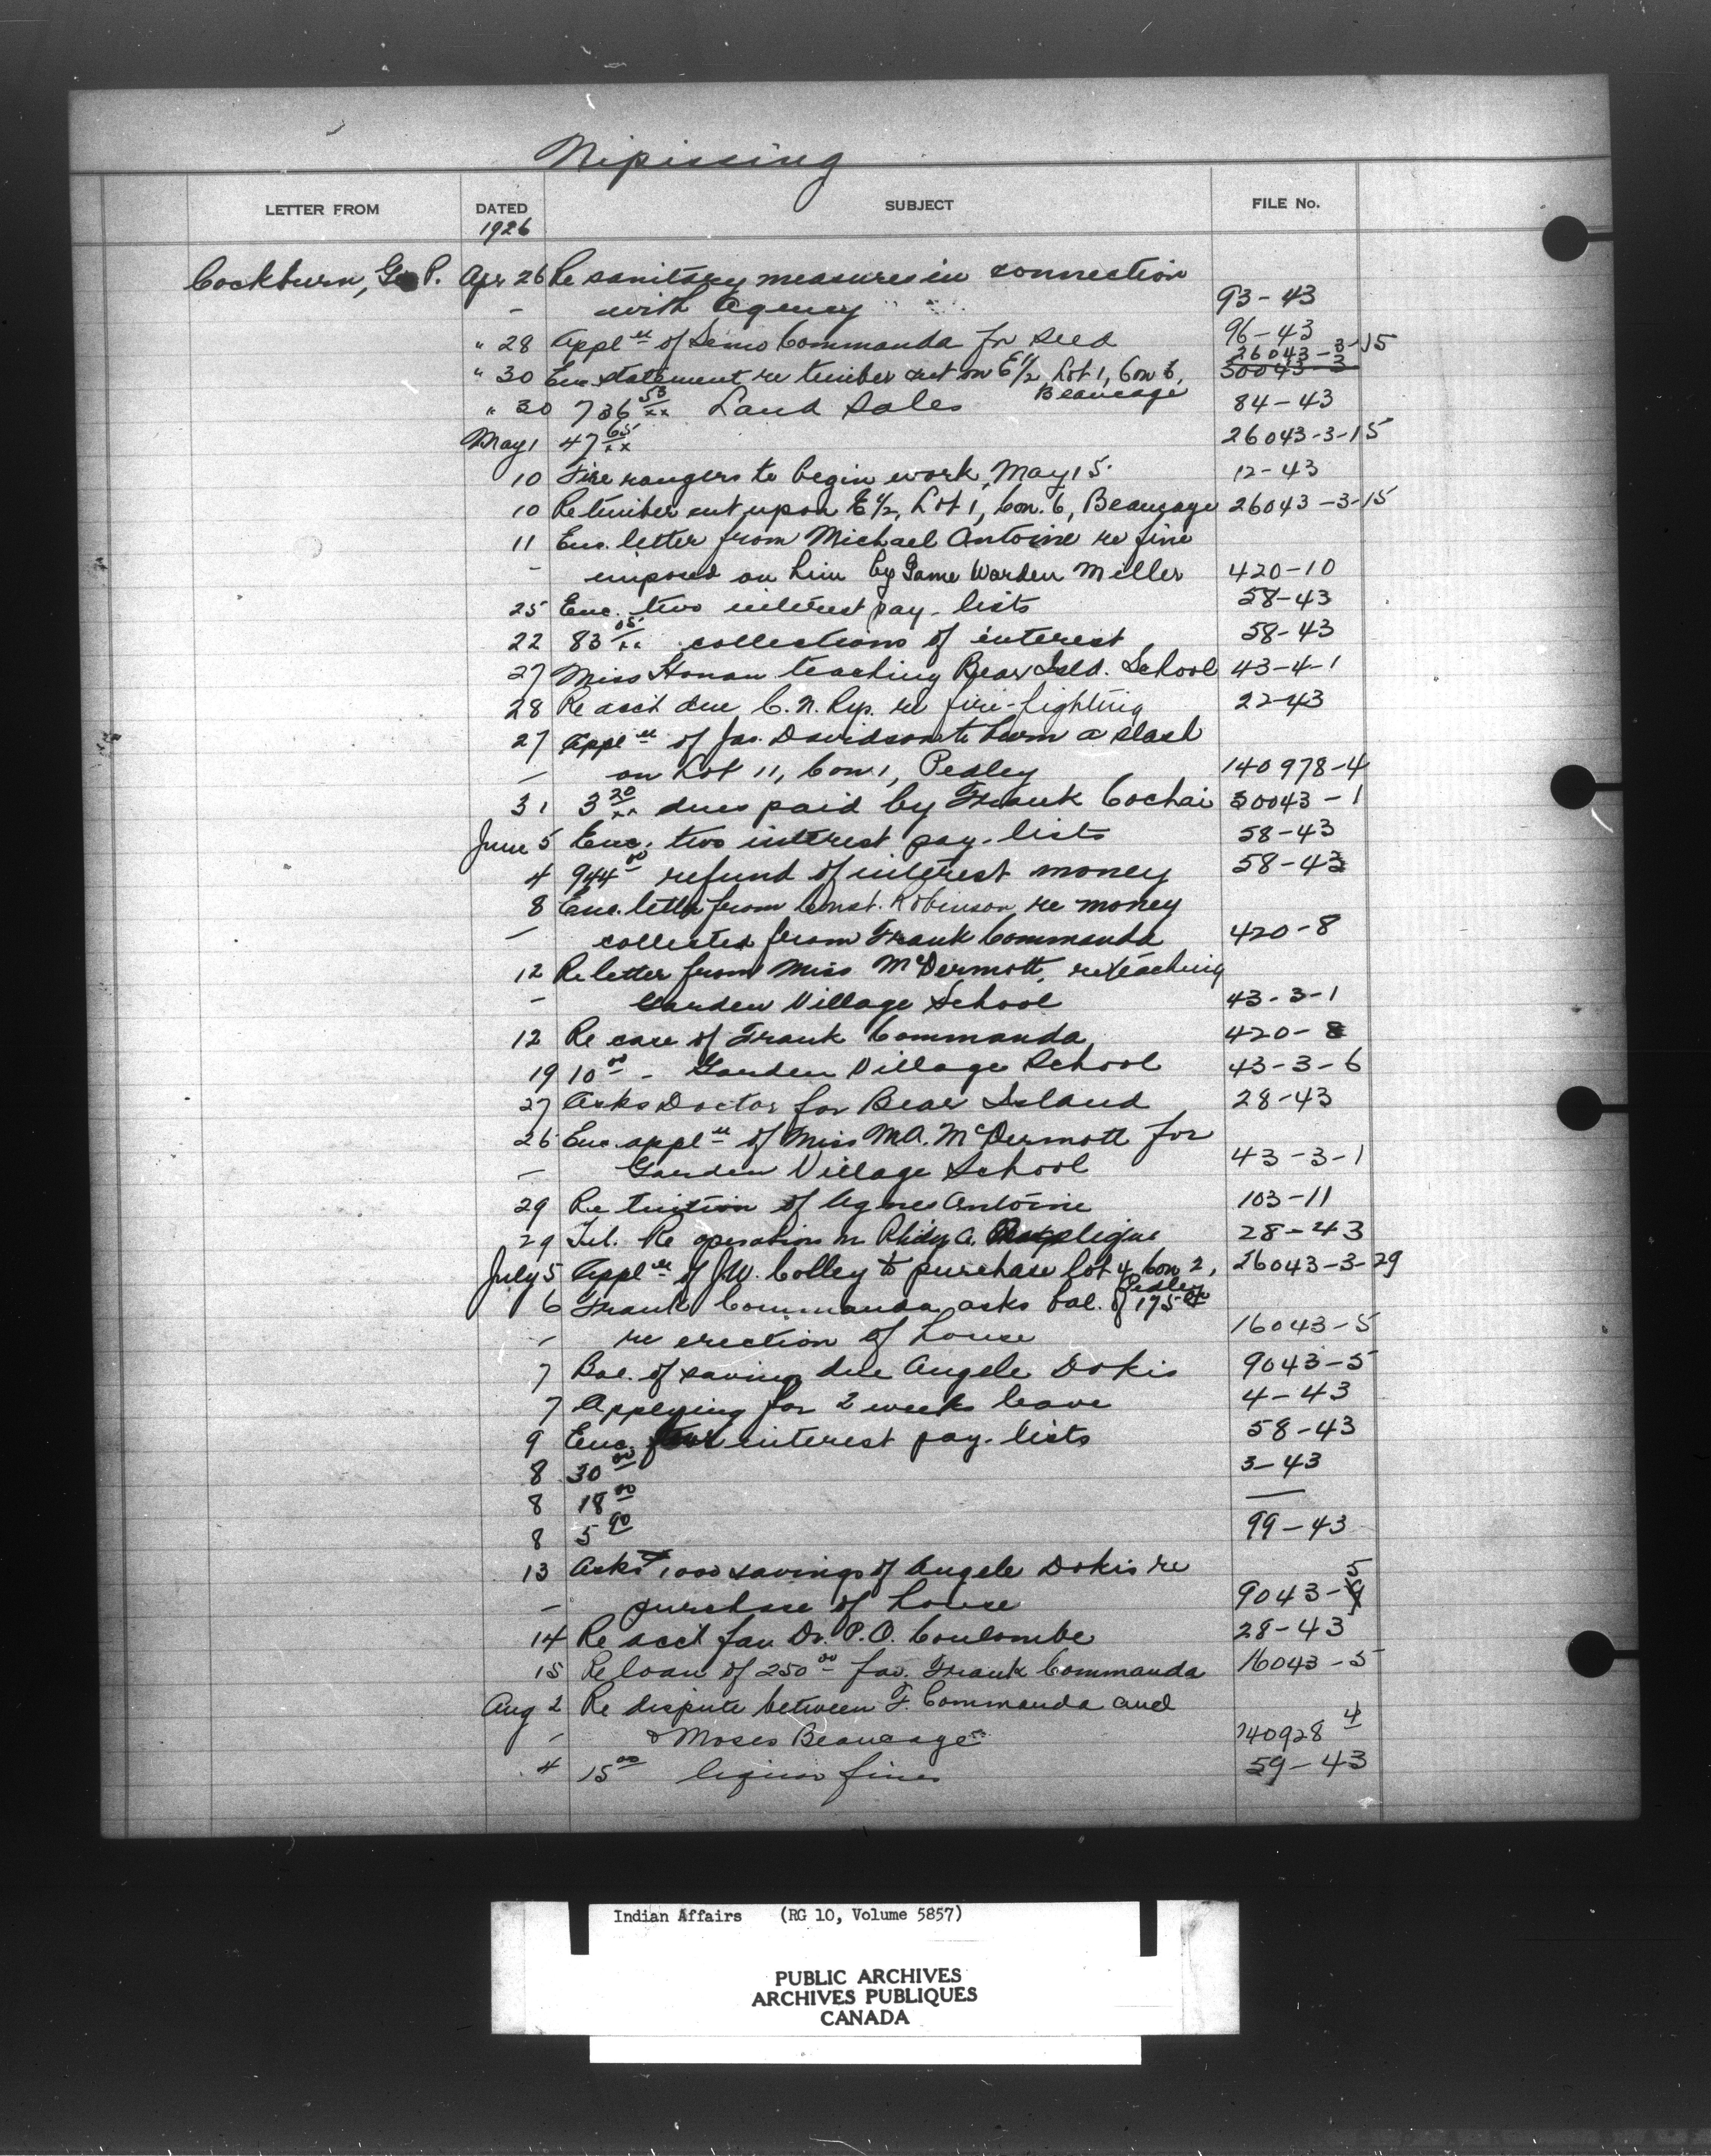 Nipissing
LETTER FROM DATED SUBJECT FILE No.
1926
Cockburn, Geo P. Apr 26 Re sanitary measures in connection
- with Agency 93-43
" 28 Appl'n of Simo Commanda for seed 96-43
26043-3-15
" 30 Enc statement re timber cut on E½, Lot 1, Con 6, 30043-3
Beaucage
" 30 736 53/xx Land Sales 84-43
May 1 47 65/xx 26043-3-15
10 Fire rangers to begin work May 15. 12-43
10 Re timber cut upon E½, Lot 1, Con. 6, Beaucage 26043-3-15
11 Enc. letter from Michael Antoine re fine
- imposed on him by Game Warden Miller 420-10
25 Enc. two interest pay-lists 58-43
22 83 05/xx collections of interest 58-43
27 Miss Honan teaching Bear Isld. School 43-4-1
28 Re acct due C.N. Rys. re fire-fighting 22-43
27 Appl'n of Jas. Davidson to burn a slash
- on Lot 11, Con 1, Pedley 140978-4
31 3 20/xx dues paid by Frank Cochai 30043-1
June 5 Enc. two interest pay-lists 58-43
4 944 00 refund of interest money 58-43
8 Enc. letter from Const. Robinson re money
- collected from Frank Commanda 420-8
12 Re letter from Miss McDermott, re teaching
- Garden Village School 43-3-1
12 Re case of Frank Commanda 420-8
19 10 00 - Garden Village School 43-3-6
27 Asks Doctor for Bear Island 28-43
26 Enc. appl'n of Miss M.A. McDermott for
- Garden Village School 43-3-1
29 Re tuition of Agnes Antoine 103-11
29 Tel. Re operation on A. 28-43
July 5 Appl'n of J.W. Colley to purchase lot 4 Con 2, 26043-3-29
Pedley
6 Frank Commanda asks bal. of 175 00
- re erection of house 16043-5
7 Bal. of savings due Angele Dokis 9043-5
7 Applying for 2 weeks leave 4-43
9 Enc. four interest pay-lists 58-43
8 30 00 3-43
8 18 00 —
8 5 90 99-43
13 Asks 1000 savings of Angele Dokis re
- purchase of house 9043-5
14 Re acct fav Dr. P.O. Coulombe 28-43
15 Re loan of 250 00 fav. Frank Commanda 16043-5
Aug 2 Re dispute between F. Commanda and
- & Moses Beaucage 140928 4
4 15 00 liquor fines 59-43
Indian Affairs (RG 10, Volume 5857)
PUBLIC ARCHIVES
ARCHIVES PUBLIQUES
CANADA